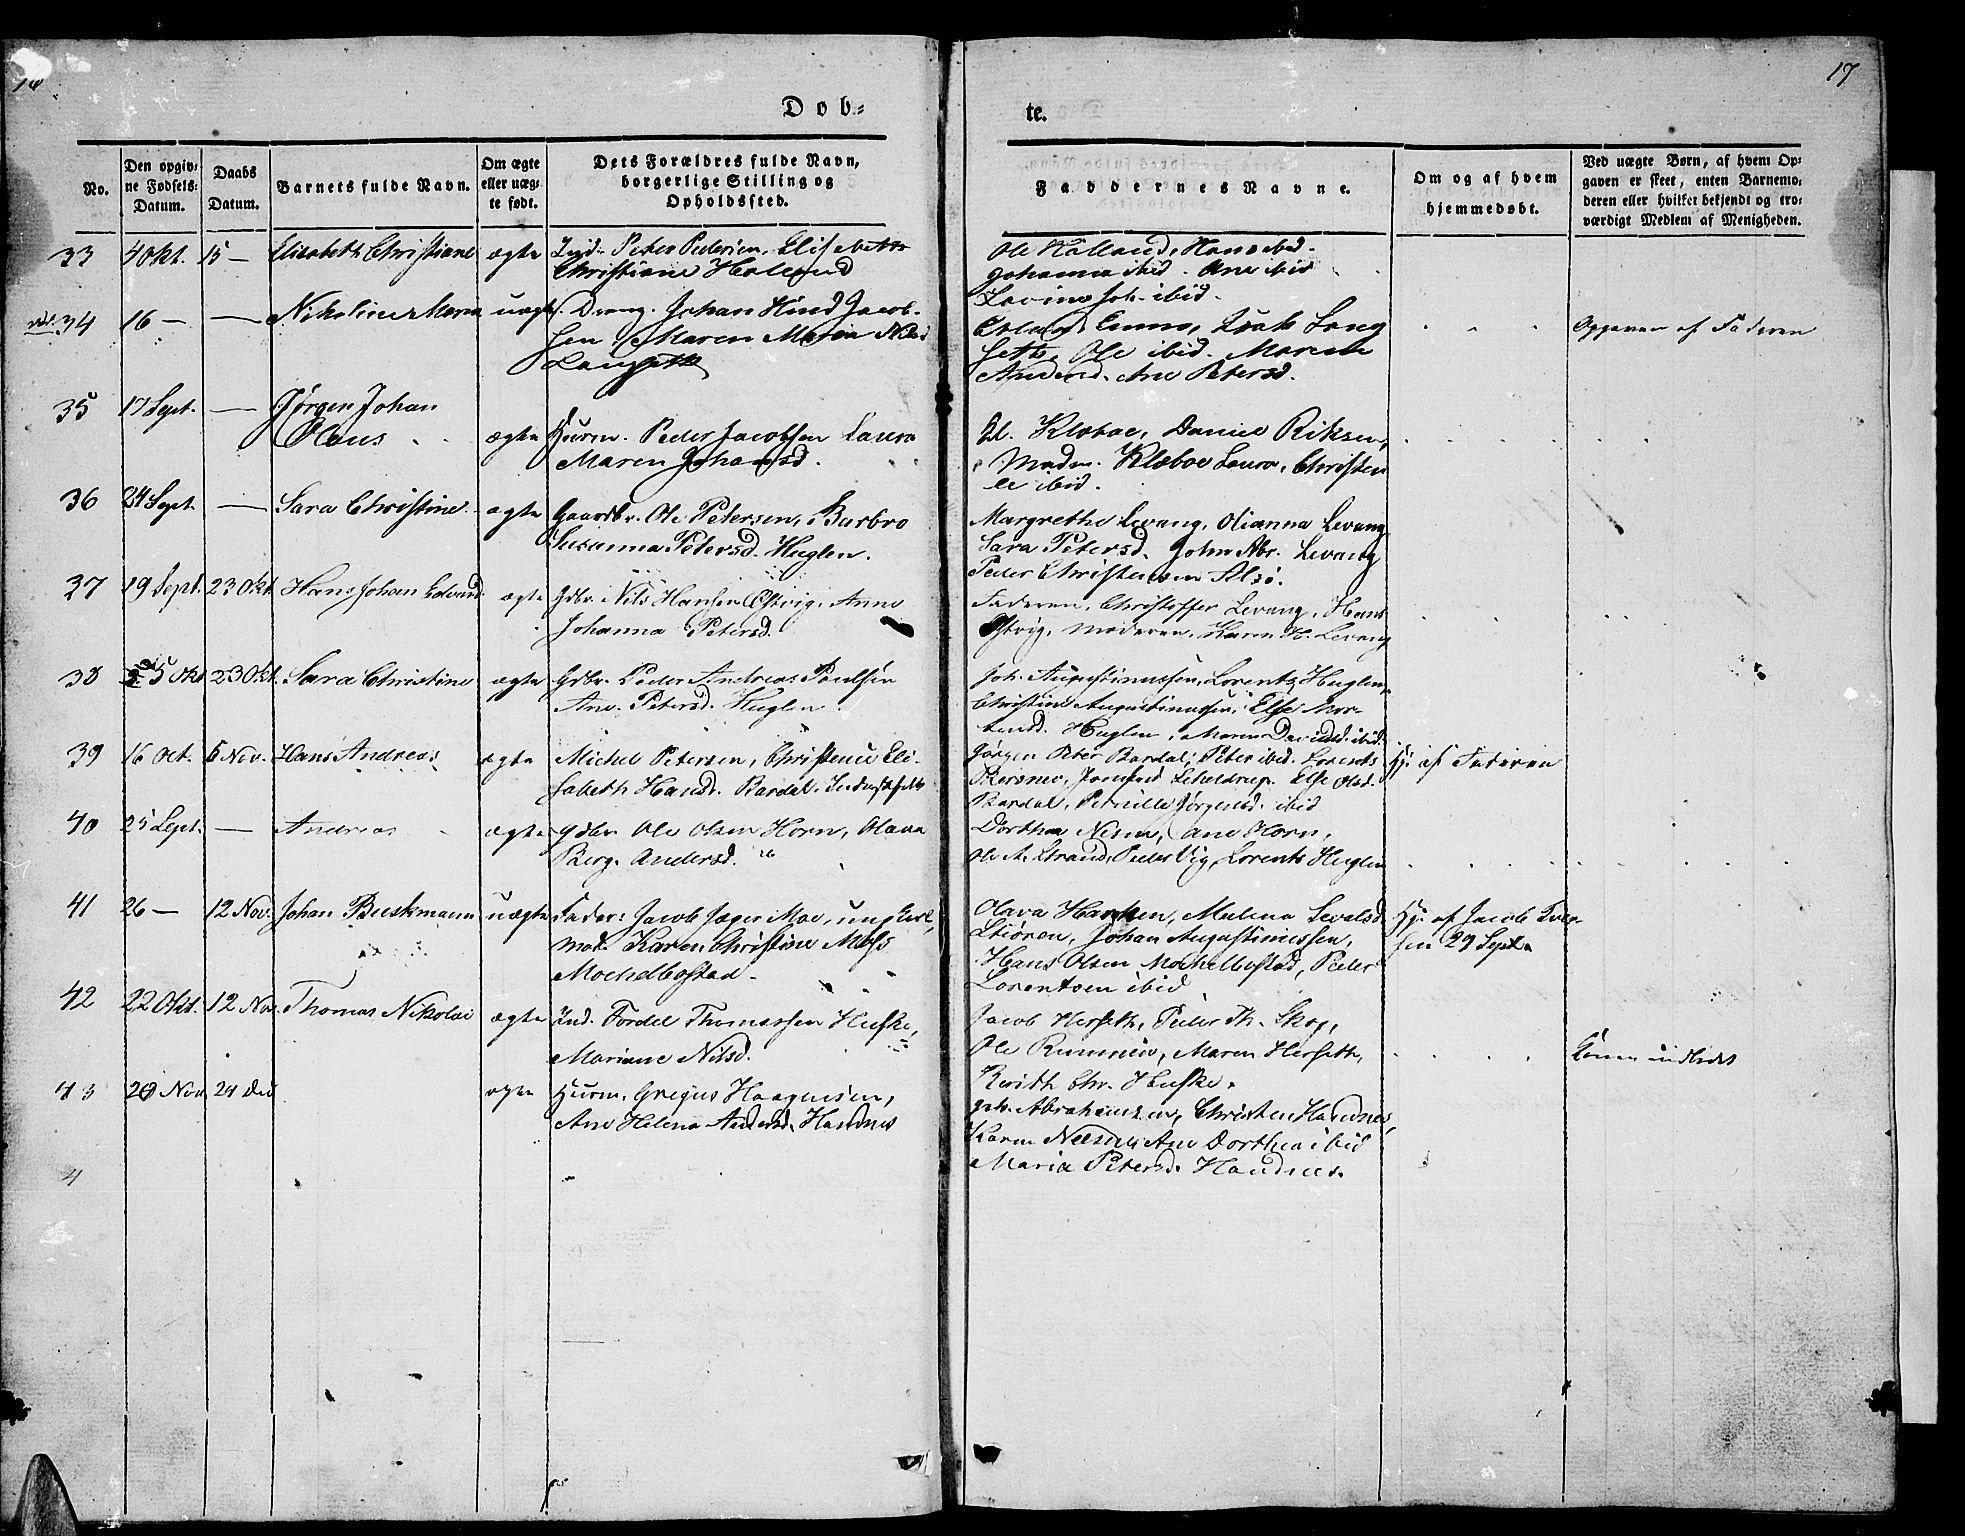 16
17
Døb-
te.
No.
Den opgiv-
ne Fødsels-
Datum.
Daabs
Datum.
Barnets fulde Navn.
Om ægte
eller uæg-
te født.
Dets Forældres fulde Navn,
borgerlige Stilling og
Opholdssted.
Faddernes Navne.
Om og af hvem
hjemmedøbt.
Ved uægte Børn, af hvem Op-
gaven er skeet, enten Barnemo-
deren eller hvilket bekjendt og tro-
værdigt Medlem af Menigheden.
33 4 Okt. 15 — Elisabeth Christiane ægte Ind. Peter Pedersen, Elisabeth
Christiane Holland
Ole Holland, Hans ibid.
Johanna ibid. Ane ibid
Lovine Joh. ibid.
34 16 — — Nikoline Maria uægte Dreng. Johan Hind Jacob-
sen Maren Maria Nilsd
Langseth
Isak Lang
seth, Ole ibid. Maren
Amundsd. Ane Petersd.
Opgaven af Faderen
35 17 Sept. — Jørgen Johan
Olaus ægte Huusm. Peder Jacobsen Laura
Maren Johansd.
Kl. Klæboe, Daniel Riksen,
Madm. Klæboe Laura, Christen
ibid.
36 24 Sept. — Sara Christine ægte Gaardbr. Ole Petersen, Barbro
Susanna Petersd. Huglen.
Margrethe Levang, Olianna Levang
Sara Petersd. John Abr. Levang
Peder Christensen Alsø.
37 19 Sept. 23 Okt. Hans Johan Edvard ægte Gdbr. Nils Hansen Østvig, Anne
Johanna Petersd.
Faderen, Christoffer Levang, Hans
Østvig, Moderen, Karen H. Levang
38 5 Okt 23 Okt. Sara Christine ægte Gdbr. Peder Andreas Poulsen
Ane Petersd. Huglen
Joh. Augustinussen, Lorents Huglen,
Christine Augustinussen, Else Mor-
tensd. Huglen, Maren Davidsd. ibid.
39 16 Oct. 6 Nov. Hans Andreas ægte Michel Petersen, Christence Eli-
sabeth Hansd. Bardal. Inderst
Jørgen Peter Bardal, Peter ibid. Lorents
Else Olsd.
Bardal, Pernille Jørgensd. ibid
Hj. af Faderen
40 25 Sept. — Andreas ægte Gdbr. Ole Olsen Horn, Olava
Berg. Andersd.
Dorthea Nisen, Ane Horn,
Ole A. Strand, Peder Vig, Lorents Huglen
41 26 — 12 Nov. Johan Buskmann uægte Fader: Jacob Jæger Moe, ungkarl,
mod. Karen Christine Mass
Mochelbostad
Olava Hansen, Melina Sevalsd
Johan Augustinussen,
Hans Olsen Mochelbostad, Peder
Lorentsen ibid
Hj. af Jacob Iver-
sen 29 Sept.
42 22 Okt. 12 Nov. Thomas Nikolai ægte Ind. Tordel Thomassen Huske,
Mariane Nilsd.
Jacob Herseth, Peder Th. Skog,
Ole Rummen, Maren Herseth,
Chr. Huske.
Konen indledet
43 20 Nov 24 Dec ægte Huusm. Gregus Haagensen,
Ane Helena Andersd. Handnes
Joh. Abrahamsen, Christen Handnes,
Karen Nilsen, Ane Dorthea ibid
Maria Petersd. Handnes.
4